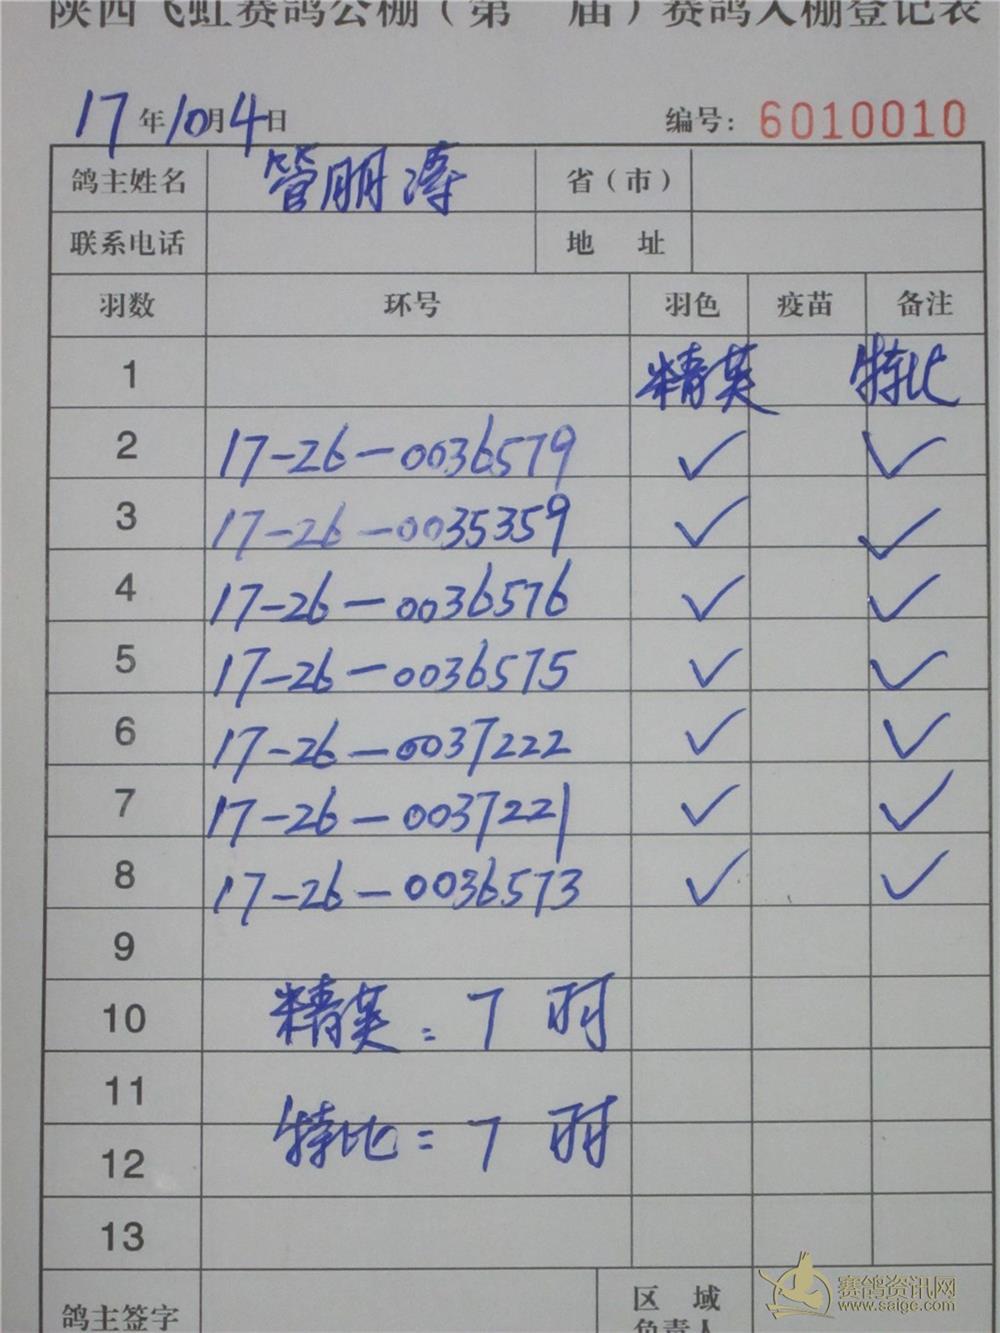 陕西飞虹赛鸽公棚（第 届）赛鸽入棚登记表
17年10月4日 编号：6010010
鸽主姓名 管朋涛 省（市）
联系电话 地 址
羽数 环号 羽色 疫苗 备注
1 精英 特比
2 17-26-0036579 ✓ ✓
3 17-26-0035359 ✓ ✓
4 17-26-0036576 ✓ ✓
5 17-26-0036575 ✓ ✓
6 17-26-0037222 ✓ ✓
7 17-26-0037221 ✓ ✓
8 17-26-0036573 ✓ ✓
9
10 精英：7 羽
11
12 特比=7 羽
13
鸽主签字 区 域
负责人
赛鸽资讯网
www.saige.com